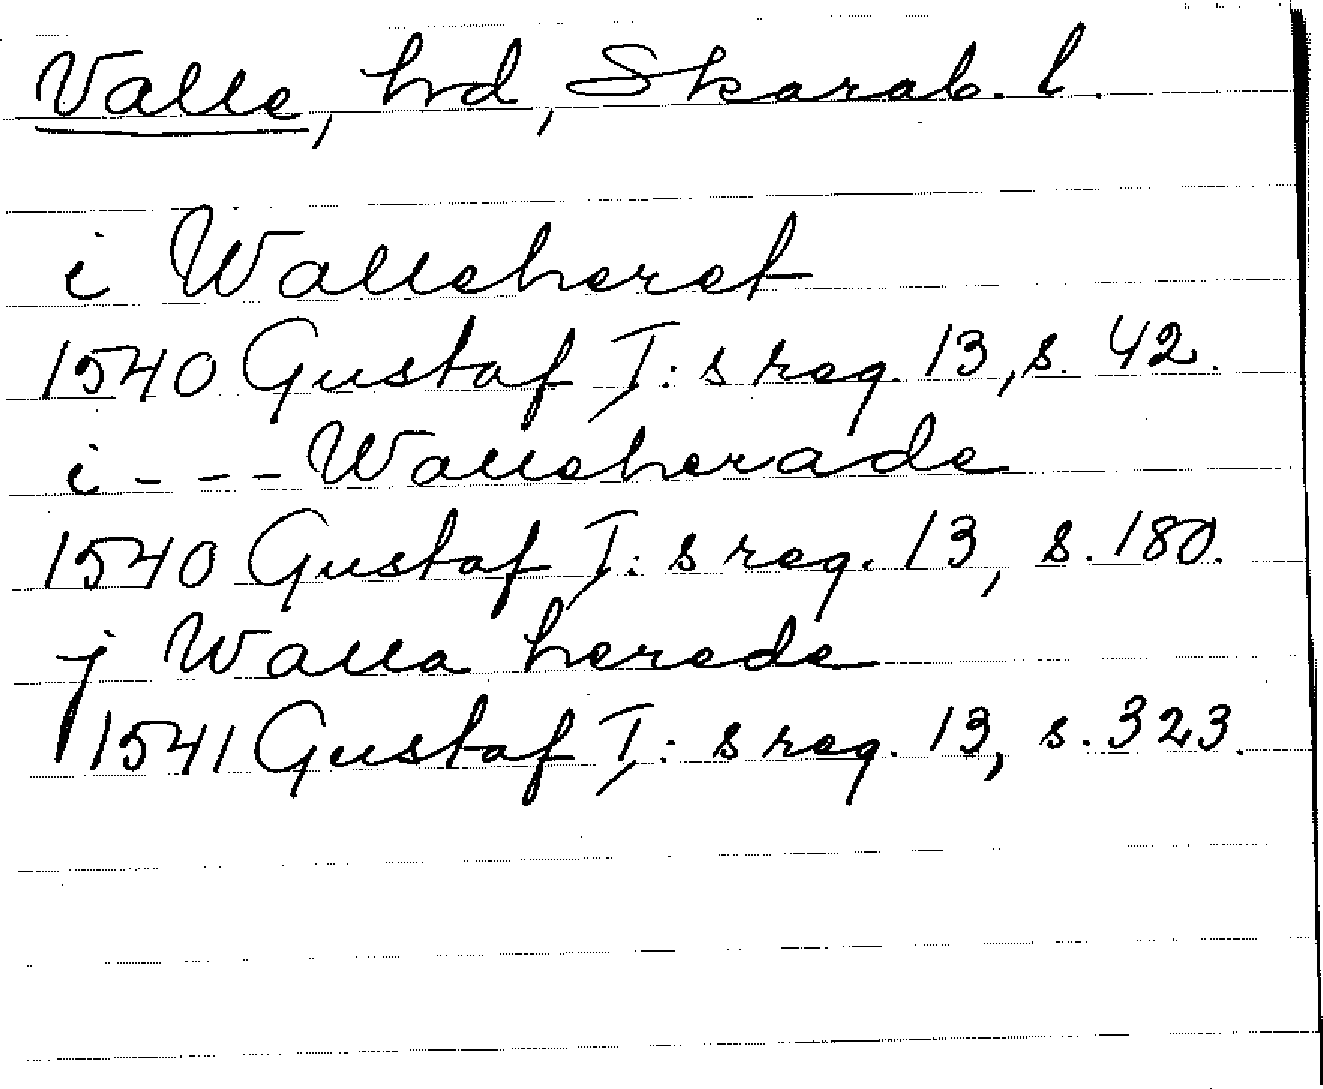 Valle, hrd, Skarab. l.
i Walleheret
1540 Gustaf I:s reg. 13, s. 42.
i - - - Walleherade
1540 Gustaf I:s reg. 13, s. 180.
j Walla herede
1541 Gustaf I:s reg. 13, s. 323.